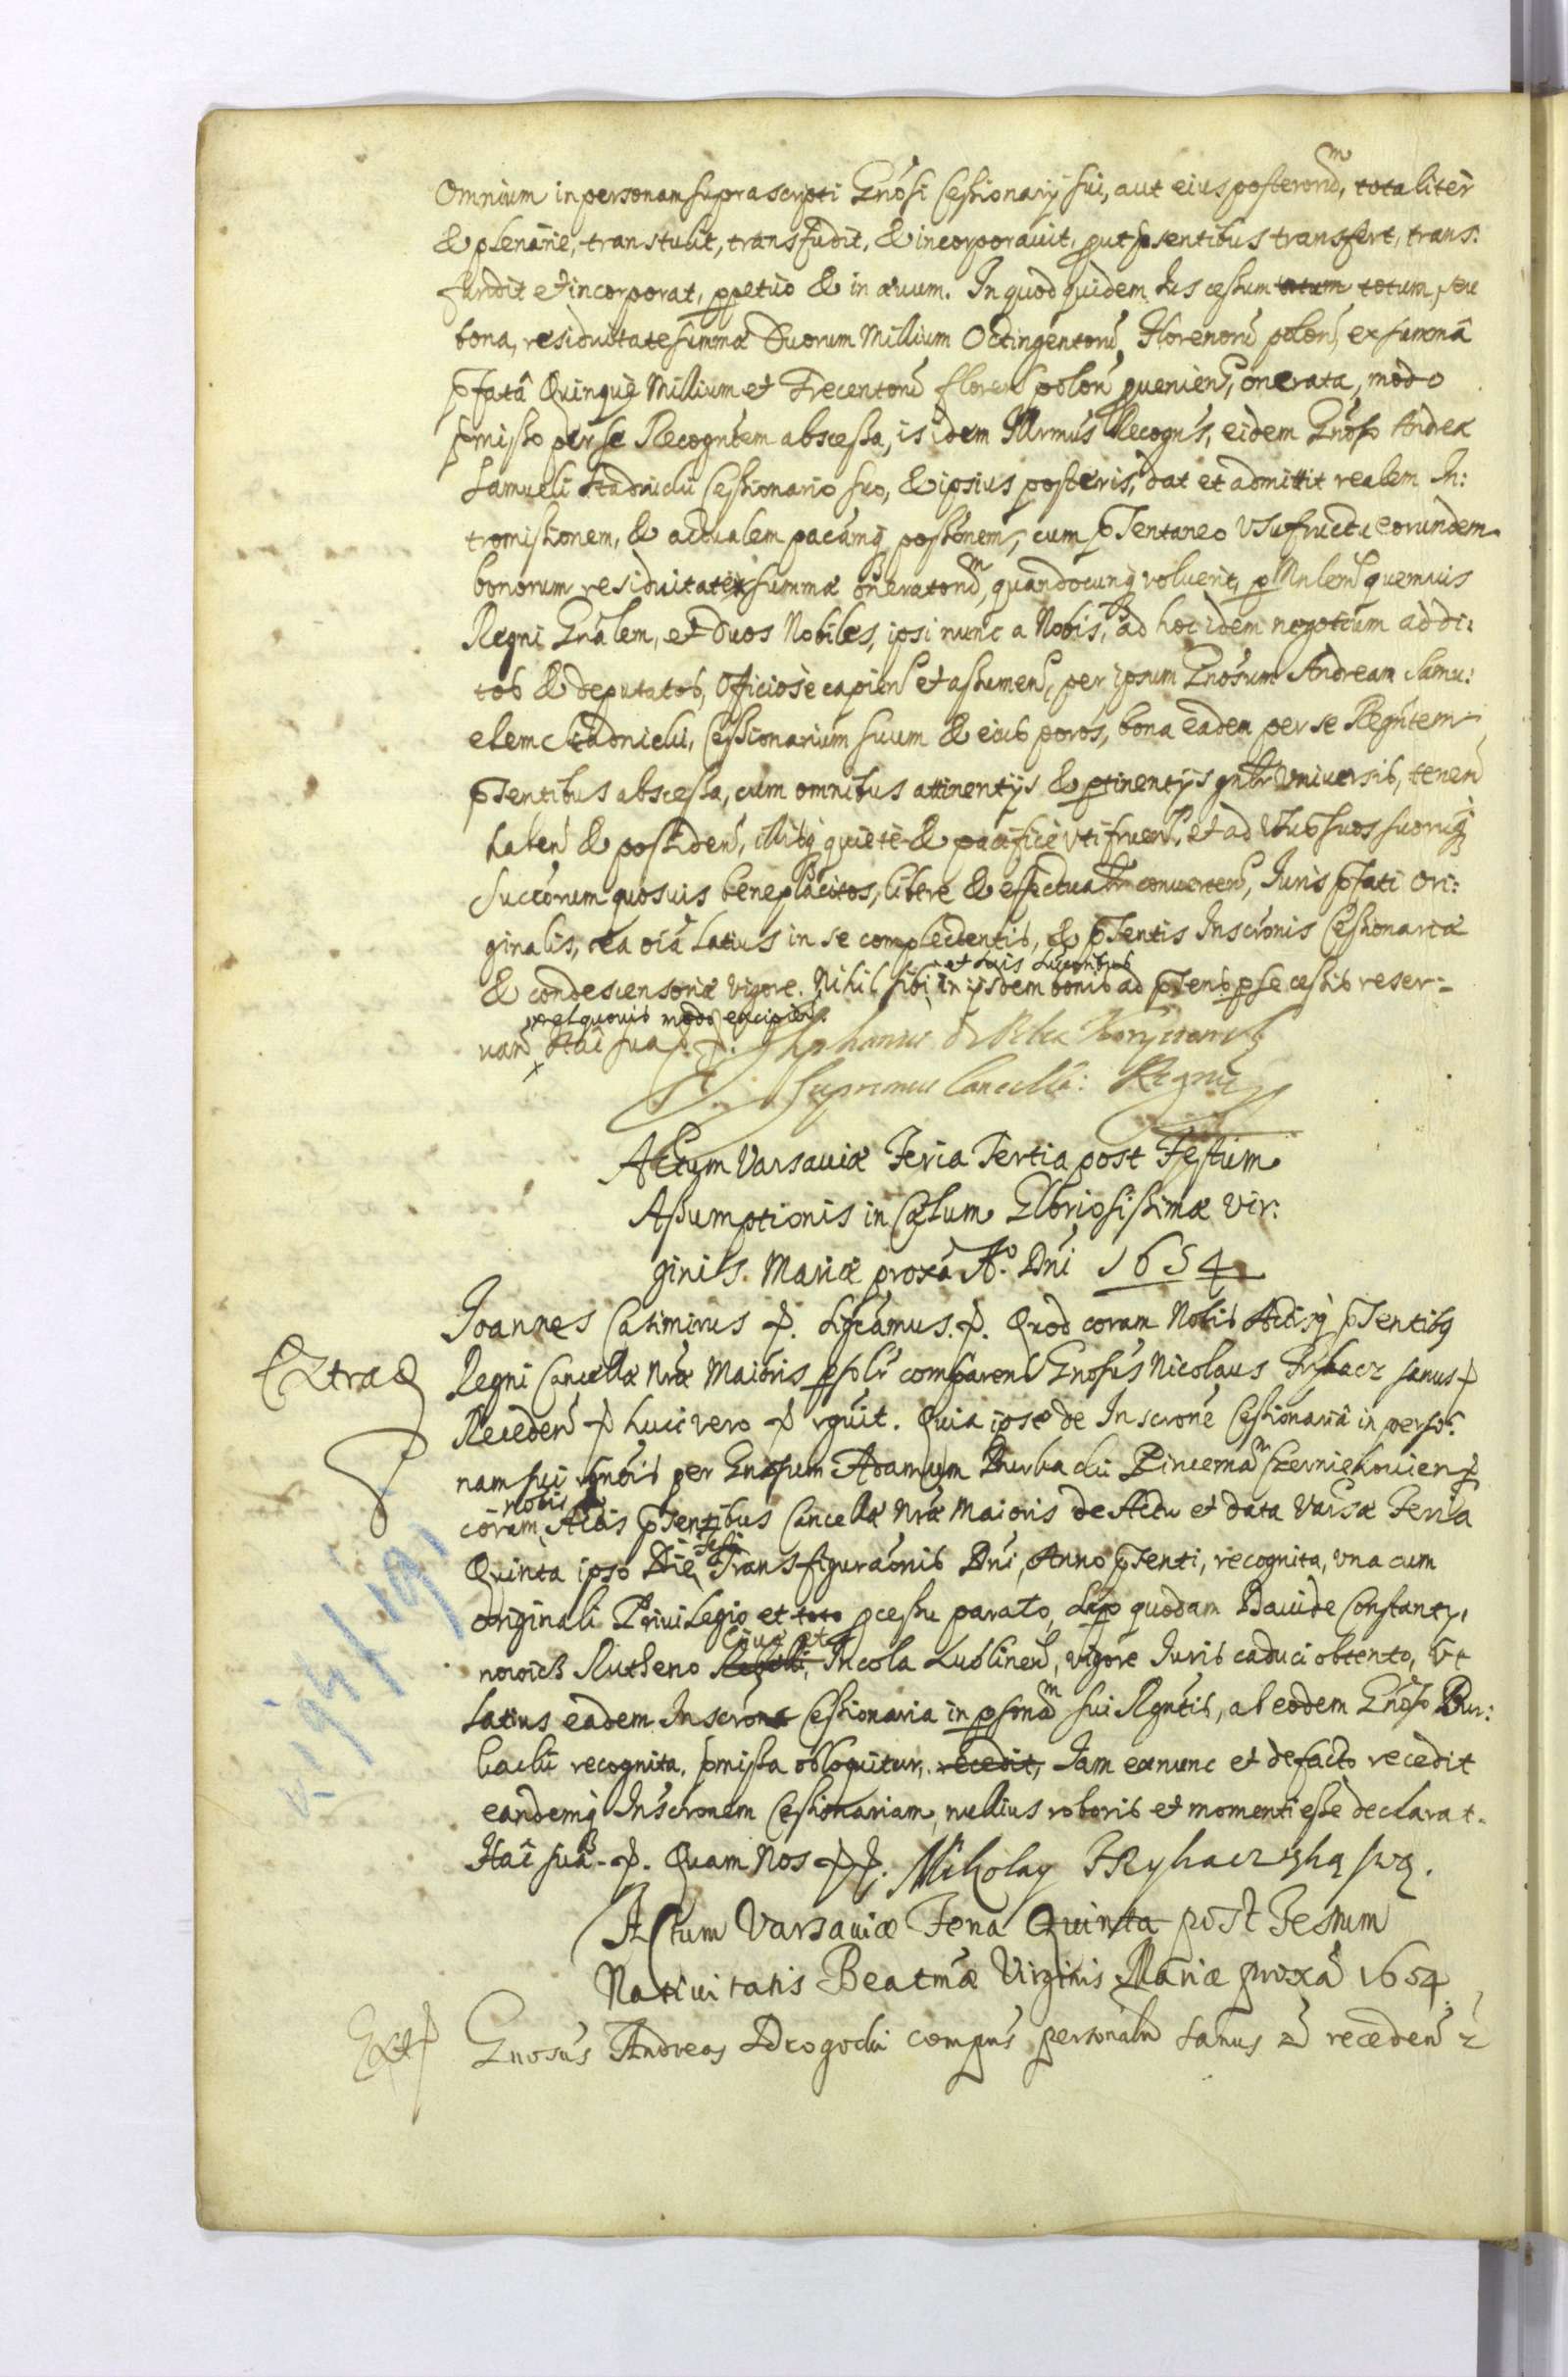 Omnium in personam suprascripti Gnosi Cessionarij sui, aut eius posterorum, totaliter
& plenarie, transtulit, transfudit, & incorporauit, prout psentibus transfert, trans:
fundit et incorporat, ppetuo & in æuum. In quod quidem Ius cessum totum totum, seu
bona, residuitate summæ Duorum Millium Octingentorũ Florenorũ polon, ex summâ
pfatâ Quinque Millium et Trecentorũ floren polon prouenien, onerata, modo
pmisso per se Recogntem abscessa, is idem Illrmus Recogns, eidem Gnoso Andreæ
Samueli Stadnicki Cessionario suo, & ipsius posteris, dat et admittit realem In:
tromissionem, & actualem pacamq possonem, cum psentaneo vsufructu eorundem
bonorum residuitate summæ oneratorum, quandocunq voluerit, p Mnlem quemuis
Regni Gnalem, et Duos Nobiles, ipsi nunc a Nobis, ad hoc idem negotium addi:
tos & deputatos, Officiose capien et assumen, per ipsum Gnosum Andream Samu:
elem Stadnicki, Cessionarium suum & eius poros, bona eadem per se Regntem
psentibus abscessa, cum omnibus attinentijs & ptinentijs gnlr vniuersis, tenen
haben & possiden, illisq quietè & pacificè vti fruen, et ad vsus suos suorũq
Succorum quosuis beneplacitos, libere & effectualr conuerten, Iuris pfati ori:
ginalis, ea oia latius in se complectentis, & psentis Inscronis Cessionariæ
et suis Succoribus
& condescensoriæ vigore. Nihil sibi in ijsdem bonis ad psens p se cessis reser:
vel quouis modo excipien
uan Stae sua p. p. Stephanus de Pilca Koryciński
Supremus Cancell: Regni
Actum Varsauiæ Feria Tertia post Festum
Assumptionis in Cælum Gloriosissimæ Vir:
ginis Mariæ proxa Aº Dni 1654
Ioannes Casimirus p. Sigcamus. p. Quod coram Nobis Actisq psentibq
Extrad
Regni Cancellæ Nræ Maioris psolr comparen Gnosus Nicolaus Frybacz sanus p
Receden p huic vero p rguit. Quia ipse de Inscrone Cessionariâ in perso:
nam sui rgntis per Gnosum Adamum Burbacki Pincernam Czerniehouien p
nobis &
coram Actis psentibus Cancellæ Nræ Maioris de Actu et data Varsæ Feria
festi
Quinta ipso Die Transfiguraonis Dni, Anno psenti, recognita, vna cum
originali Priuilegio et toto pcessu parato, sup quodam Dauide Constanty:
Ciue et
nowicz Rutheno Incola Lublinen, vigore Iuris caduci obtento, Vt
latius eadem Inscrone Cessionaria in psonam sui Rgntis, ab eodem Gnoso Bur:
backi recognita, pmissa obloquitur, recedit, Iam exnunc et defacto recedit
eandemq Inscronem Cessionariam, nullius roboris et momenti esse declarat.
Stae sua p. Quam Nos p p. Mikolay Frybacz ręką swą.
Actum Varsauiæ Feria Quinta post Festum
Natiuitatis Beatmæ Virginis Mariæ proxa 1654
Ext p
Gnosus Andreas Drogocki compns personalr sanus receden